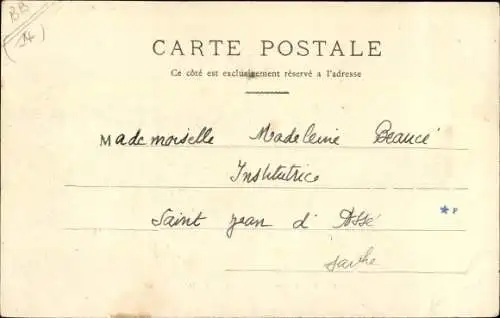 BB
(14)
CARTE POSTALE
Ce côté est exclusivement réservé a l'adresse
Mademoiselle Madeleine Beaucé
Institutrice
Saint Jean d'Assé
Sarthe